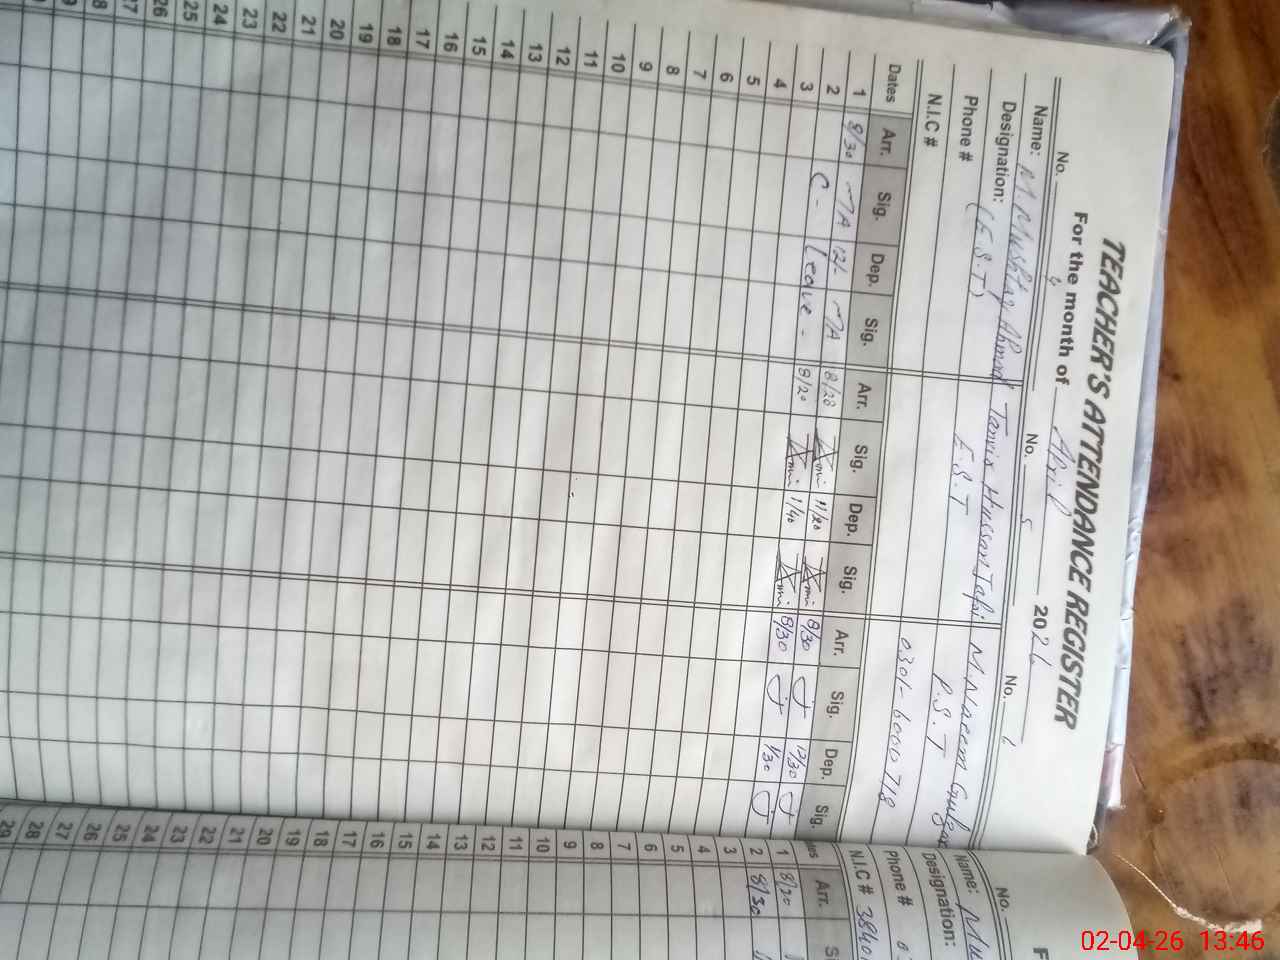 TEACHER'S ATTENDANCE REGISTER
For the month of April 2026
No. 4 No. 5 No. 6
Name: M. Mushtaq Ahmad Tanvir Hussain Jafri M. Naeem
Designation: (E.S.T) E.S.T P.S.T
Phone # 0301-6000718
N.I.C #
Dates Arr. Sig. Dep. Sig. Arr. Sig. Dep. Sig. Arr. Sig. Dep. Sig.
1 8/30 MA 12/- MA 8/20 11/20 8/30 12/30
2 C - Leave - 8/20 1/40 8/30 1/30
3
4
5
6
7
8
9
10
11
12
13
14
15
16
17
18
19
20
21
22
23
24
25
26
No.
Name: Mu
Designation:
Phone #
N.I.C # 38401
Arr.
1 8/20
2 8/30
3
4
5
6
7
8
9
10
11
12
13
14
15
16
17
18
19
20
21
22
23
24
25
26
27
28
29
02-04-26 13:46